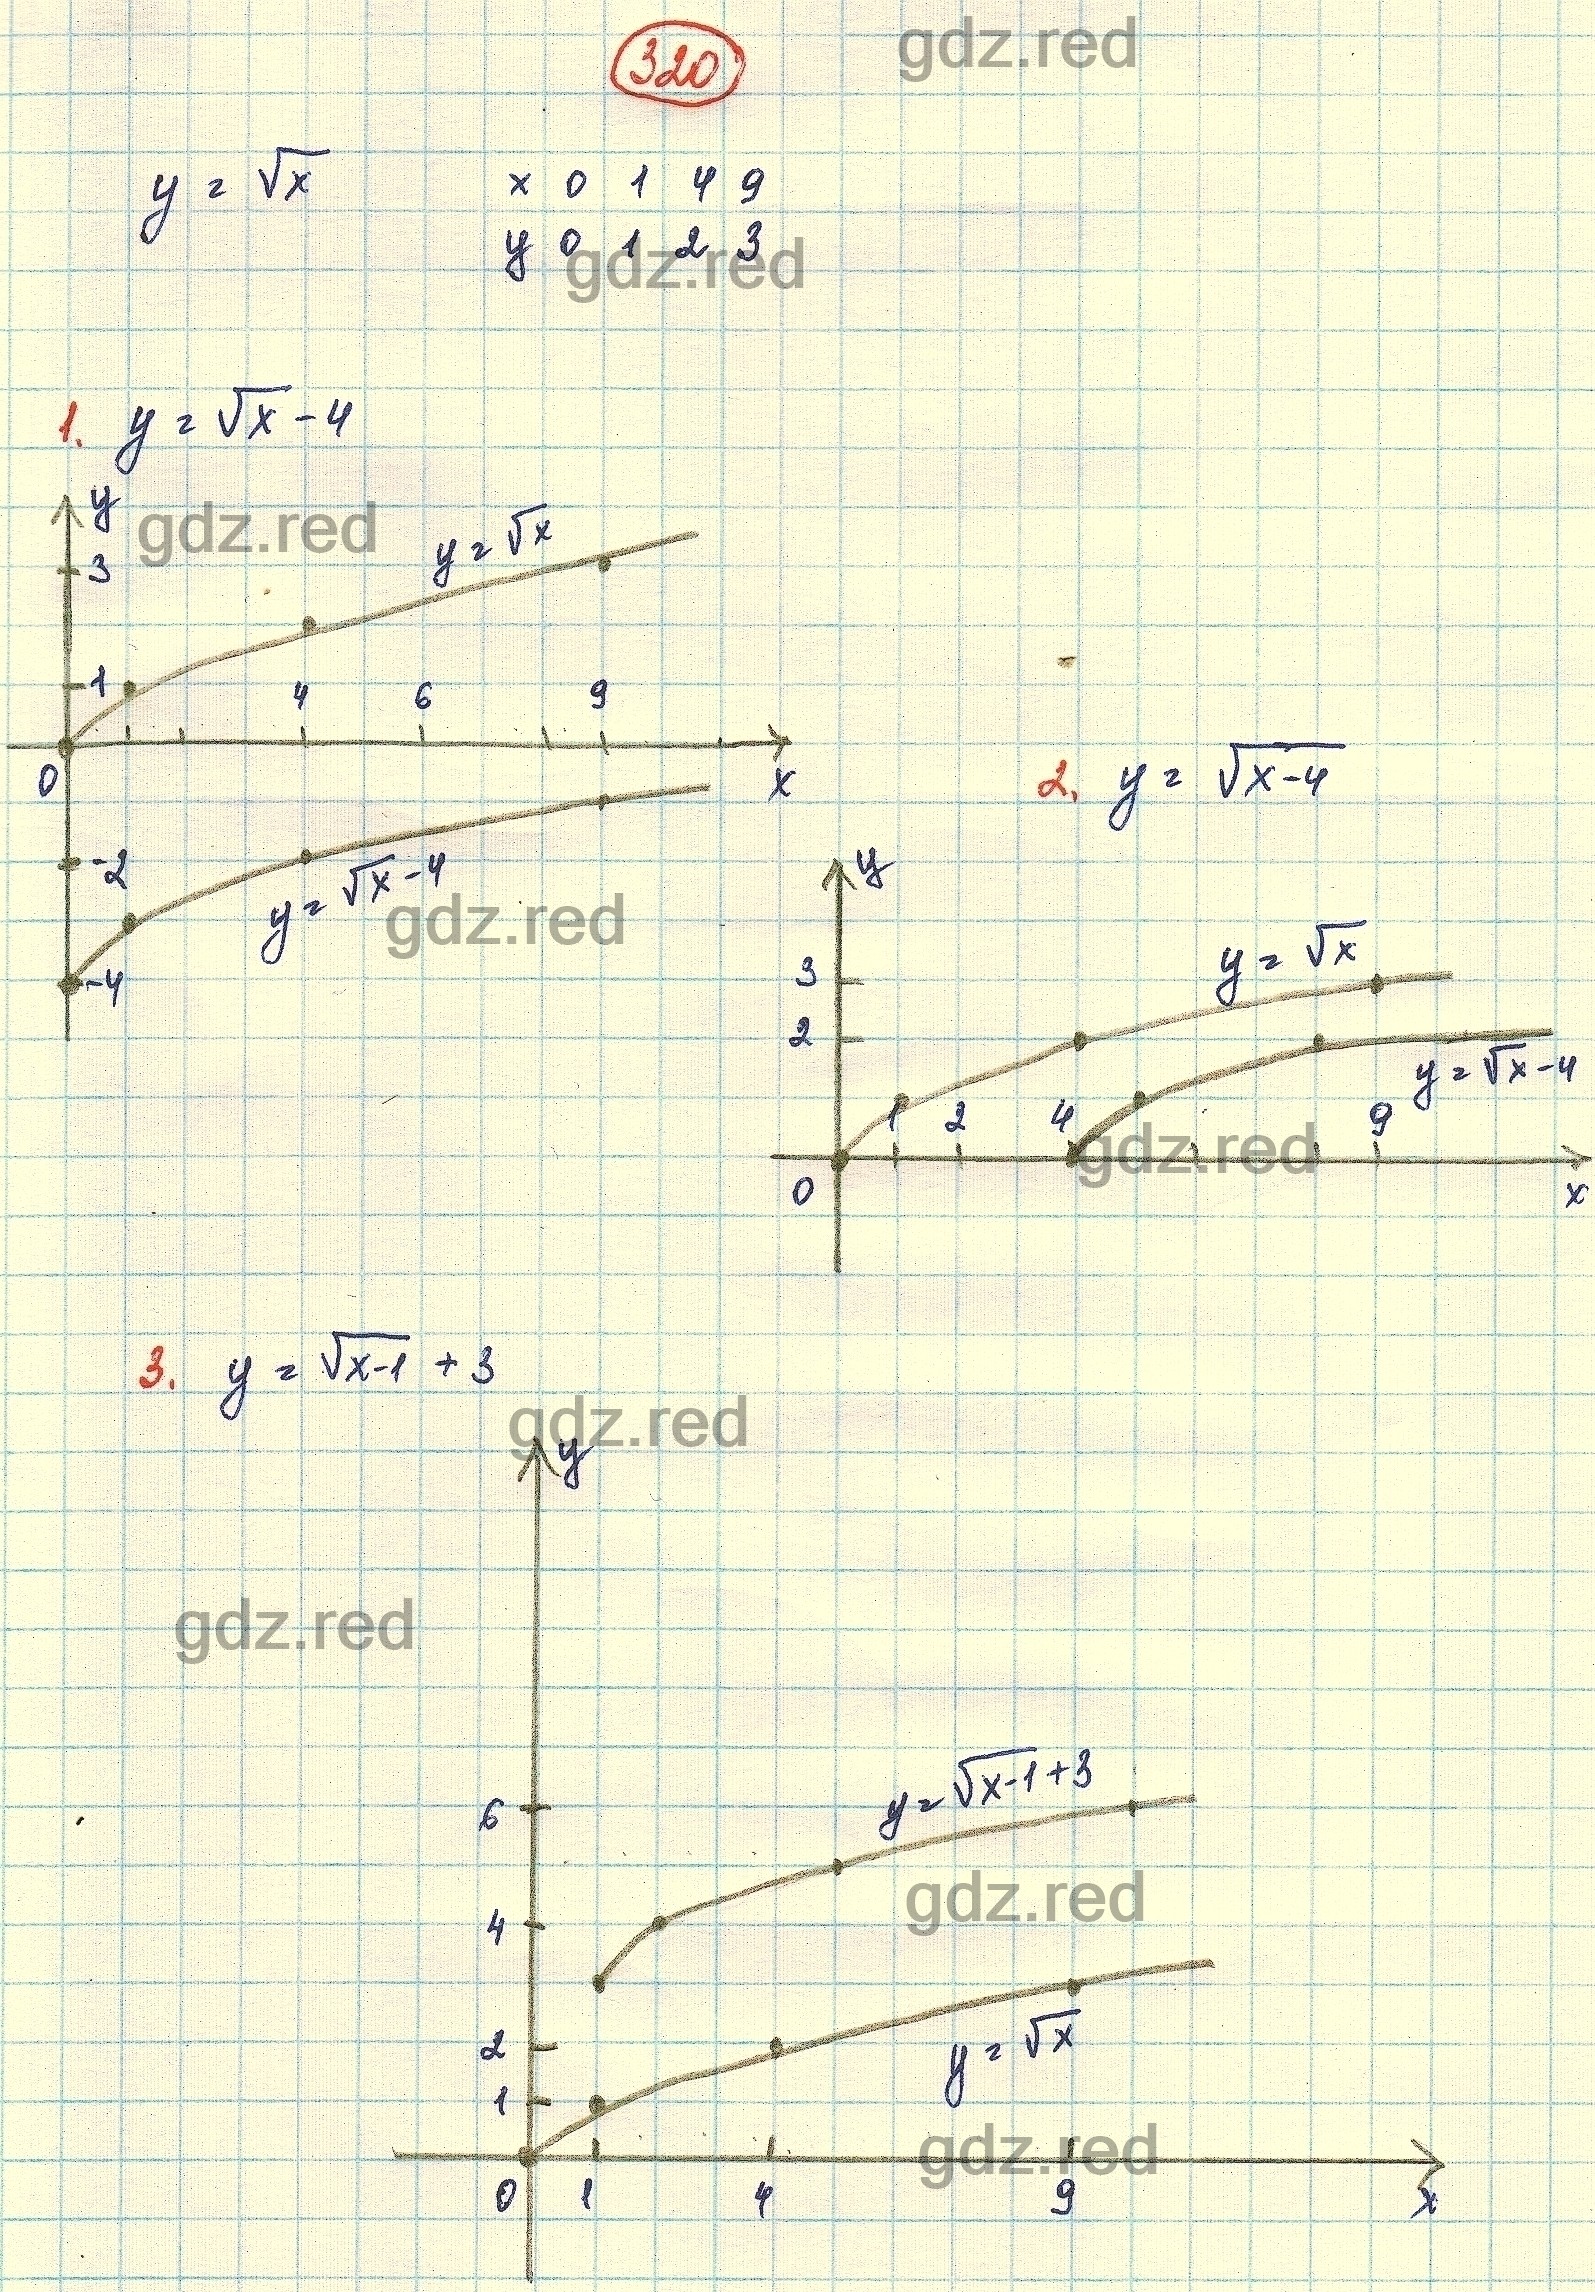 320
gdz.red
y = √x    x 0 1 4 9
y 0 1 2 3
gdz.red
1. y = √x - 4
y
gdz.red
y = √x
3
1 4 6 9
0 x
2. y = √x-4
-2
y = √x - 4
gdz.red
-4
y
y = √x
3
2
y = √x - 4
1 2 4 9
gdz.red
0 x
3. y = √x-1 + 3
gdz.red
y
gdz.red
y = √x-1 + 3
6
gdz.red
4
2
y = √x
1
gdz.red
0 1 4 9 x